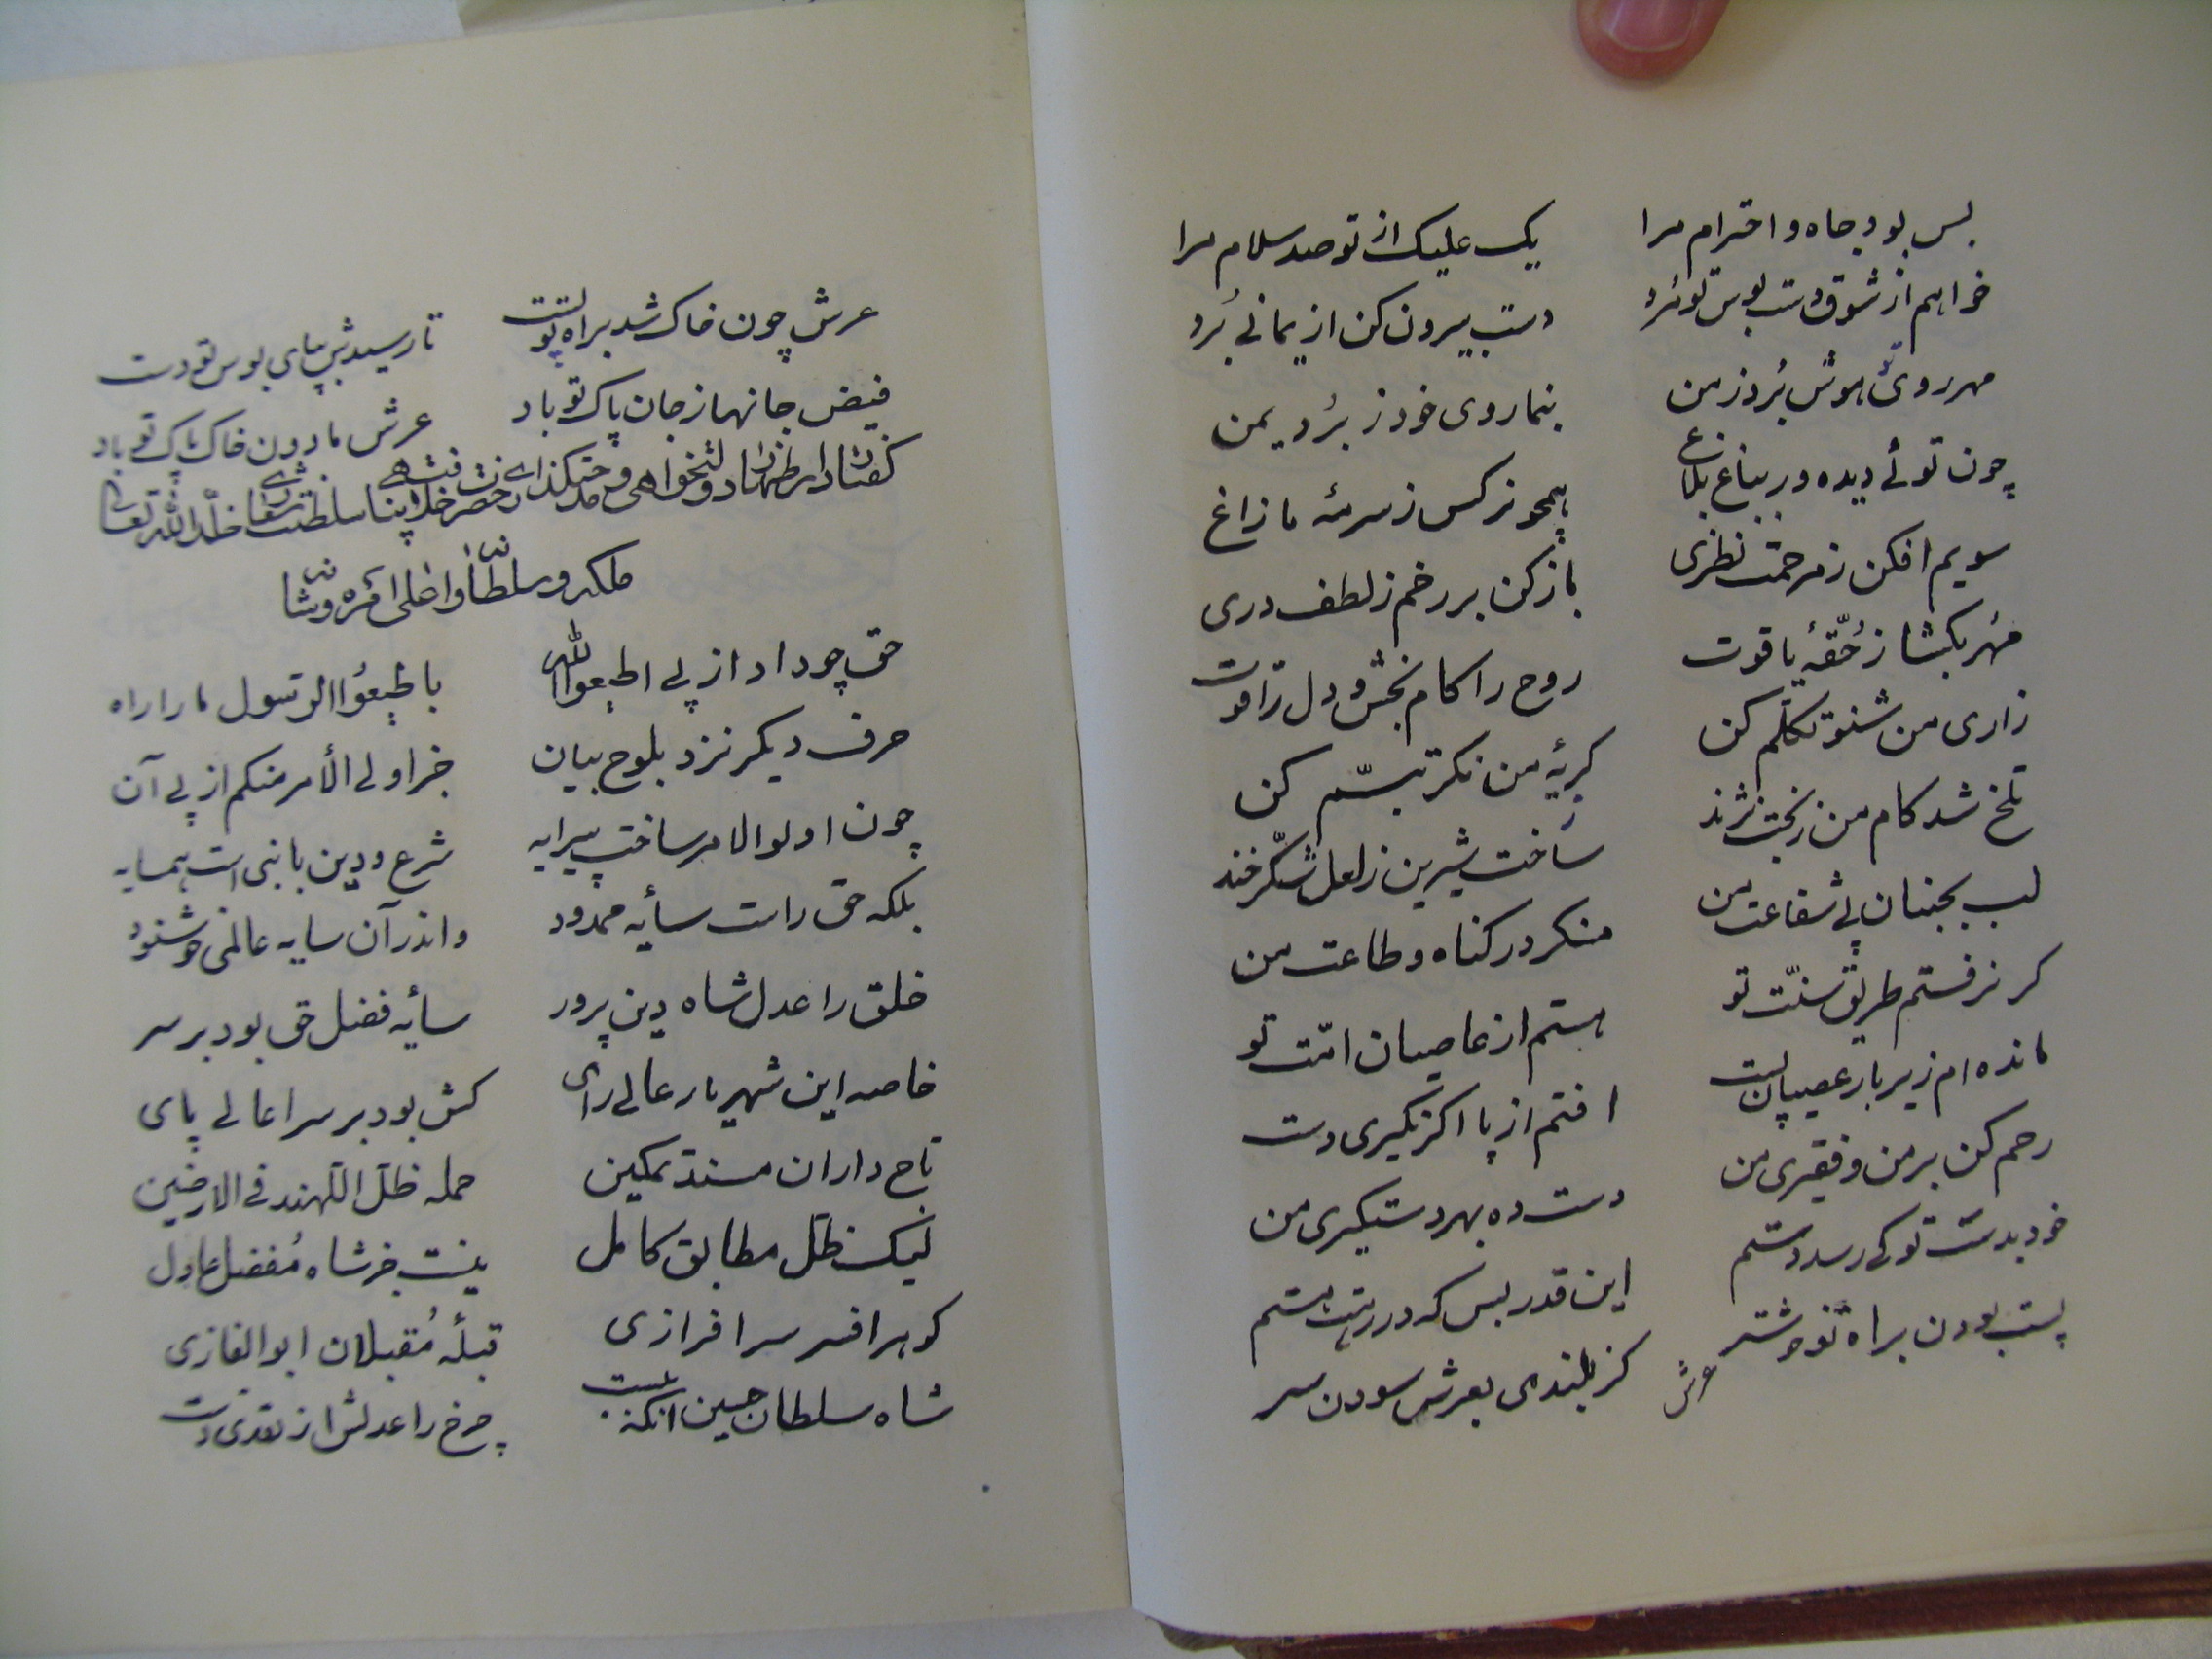 بس بود جاه و احترام مرا یک علیک از تو صد سلام مرا
خواهم از شوق دست بوس تو مُرد دست بیرون کن از یمانی بُرد
مهر روی تو هوش بُرد ز من بنما روی خود ز بُرد یمن
چون توئے دیده ور بباغ بلاغ همچو نرکس ز سرمهٔ ما زاغ
سویم افکن ز مرحمت نظری باز کن بر رخم ز لطف دری
مُهر بکشا ز حُقّهٔ یاقوت روح را کام بخش و دل را قوت
زاری من شنو تکلّم کن کریهٔ من نکر تبسّم کن
تلخ شد کام من ز بخت نژند ساخت شیرین ز لعل شکّر خند
لب بجنبان پے شفاعت من منکر در کناه و طاعت من
کر نرفتم طریق سنّت تو هستم از عاصیان امّت تو
مانده ام زیر بار عصیان پست افتم از پا اکر نکیری دست
رحم کن بر من و فقیری من دست ده بهر دستکیری من
خود بدستت تو کے رسد دستم این قدر بس که در رهت هستم
پست بودن براه تو خوشتر کز بلندی بعرش سودن سر
عرش
عرش چون خاک شد براه تو پست تا رسیدش بپای بوس تو دست
فیض جانها ز جان پاک تو باد عرش مادون خاک پاک تو باد
کفتار در اظهار دولتخواهی و مدحتکذاری حضرت خلافت پناهی سلطنت شعاری خلّد الله تعالی
ملکه و سلطانه و اعلی امره و شانه
حق چو داد از پے اطیعوا الله با اطیعُوا الرّسول ما را راه
حرف دیکر نزد بلوح بیان جز اولے الأمر منکم از پے آن
چون اولوالامر ساخت پیرایه شرع و دین با نبی است همسایه
بلکه حق راست سأیه ممدود واندر آن سایه عالمی خوشنود
خلق را عدل شاه دین پرور سأیه فضل حق بود بر سر
خاصه این شهریار عالے رای کش بود بر سر اعالے پای
تاج داران مسند تمکین جمله ظلّ اللّهند فے الارضین
لیک ظلّ مطابق کامل نیست جز شاه مُفضل عادل
کوهر افسر سرافرازی قبلهٔ مُقبلان ابوالغازی
شاه سلطان حسین آنکه ببست چرخ را عدلش از تعدی دست